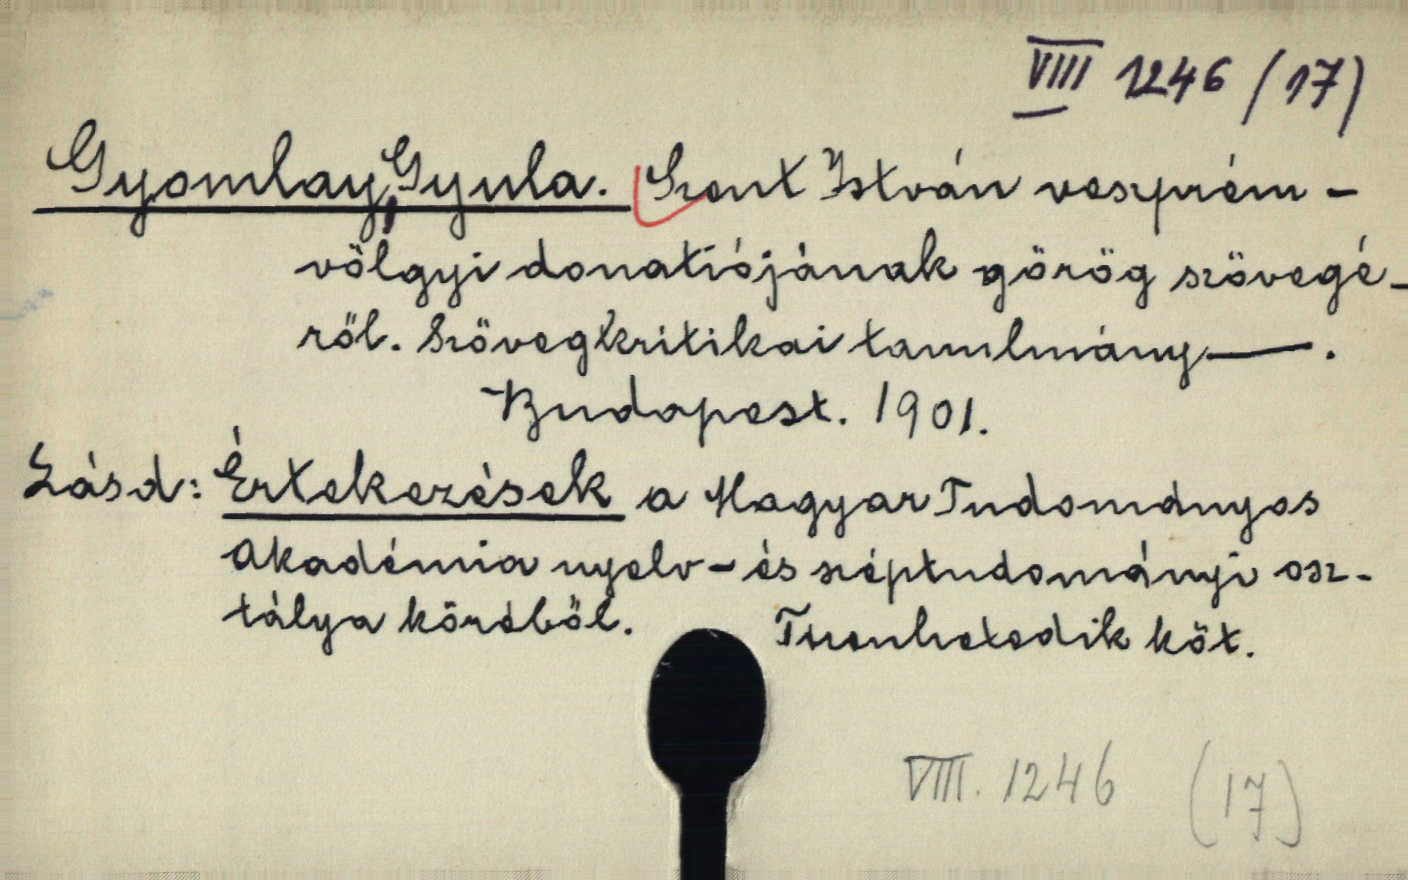 VIII 1246 (17)
Gyomlay, Gyula. Szent István veszprém-
völgyi donatiójának görög szövegé-
ről. Szövegkritikai tanulmány —.
Budapest. 1901.
Lásd: Értekezések a Magyar Tudományos
Akadémia nyelv- és széptudományi osz-
tálya köréből. Tizenhetedik köt.
VIII. 1246 (17)